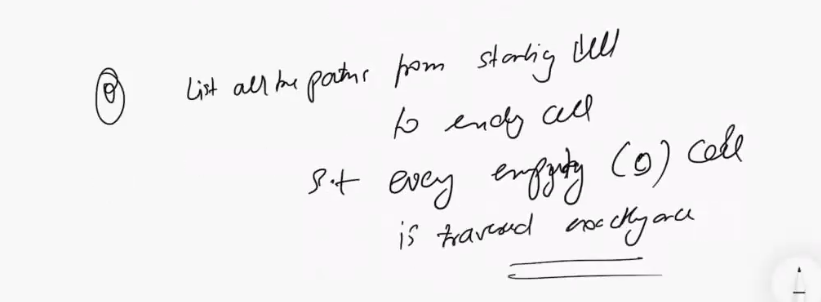 Q List all the paths from starting cell
to ending cell
s.t every empty (0) cell
is traversed exactly once